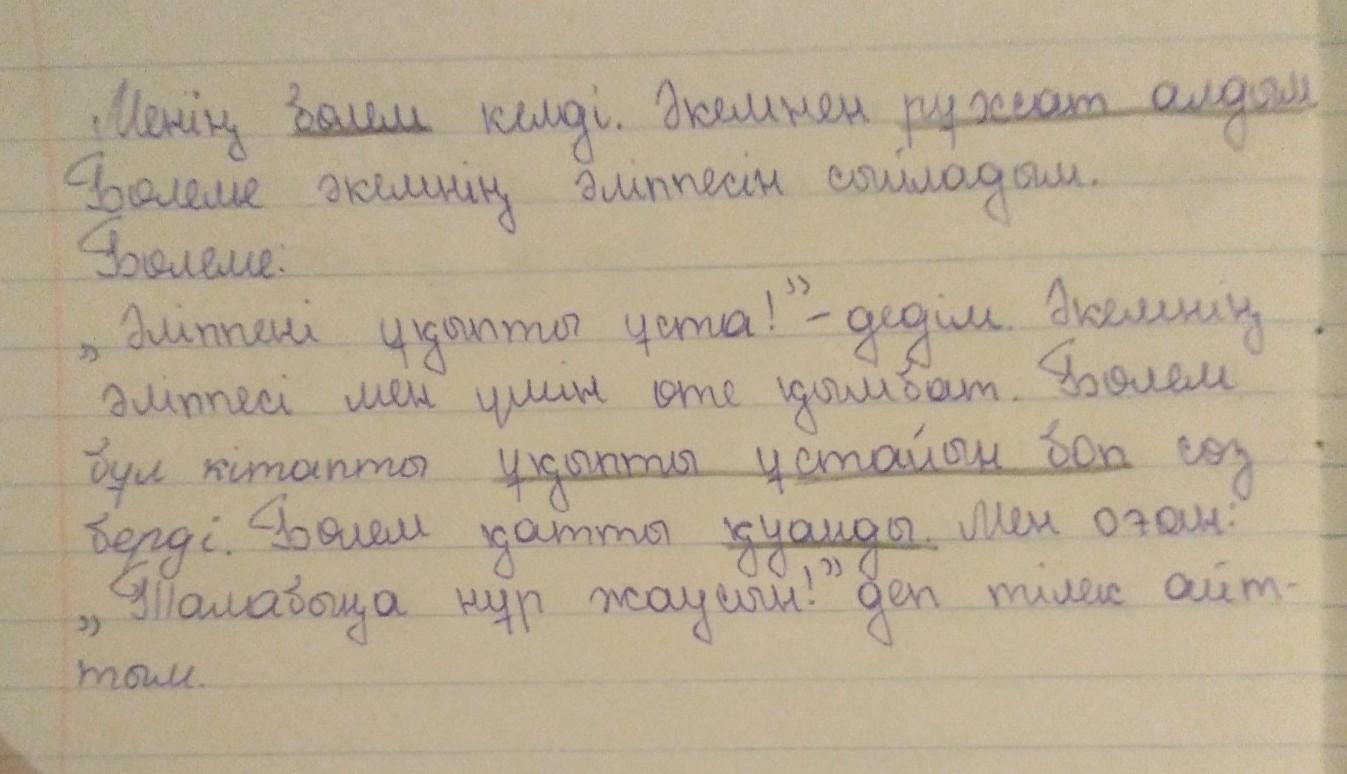 Менің бөлем келді. Әкемнен рұқсат алдым
Бөлеме әкемнің әліппесін сыйладым.
Бөлеме:
„Әліппені ұқыпты ұста!” – дедім. Әкемнің
әліппесі мен үшін өте қымбат. Бөлем
бұл кітапты ұқыпты ұстайын боп сөз
берді. Бөлем қатты қуанды. Мен оған:
„Талабыңа нұр жаусын!” деп тілек айт-
тым.